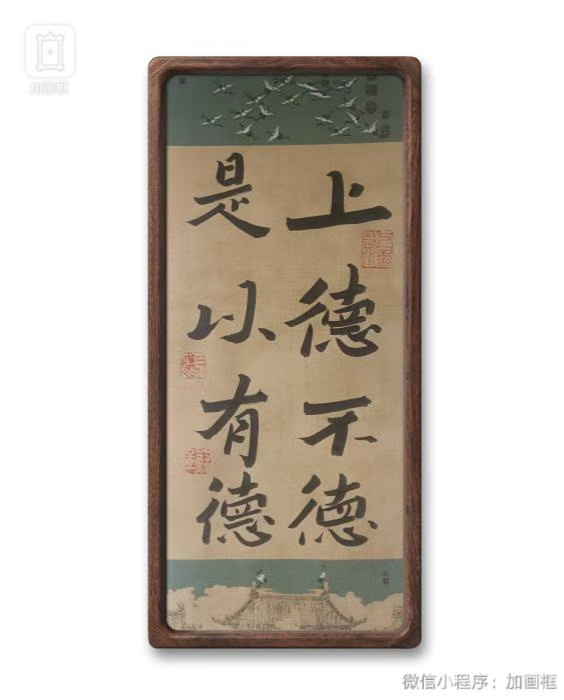 上德不德
是以有德
加画框
微信小程序：加画框